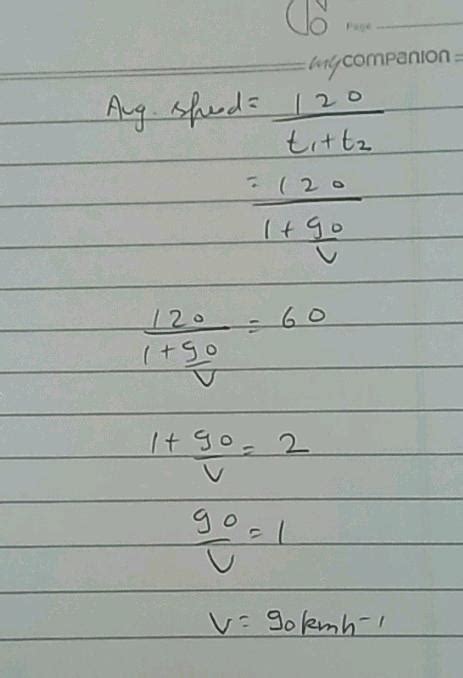 Page
my companion
Avg. speed = 120
t₁+t₂
= 120
1+90
V
120 = 60
1+90
V
1+ 90 = 2
V
90 = 1
V
V = 90kmh-1